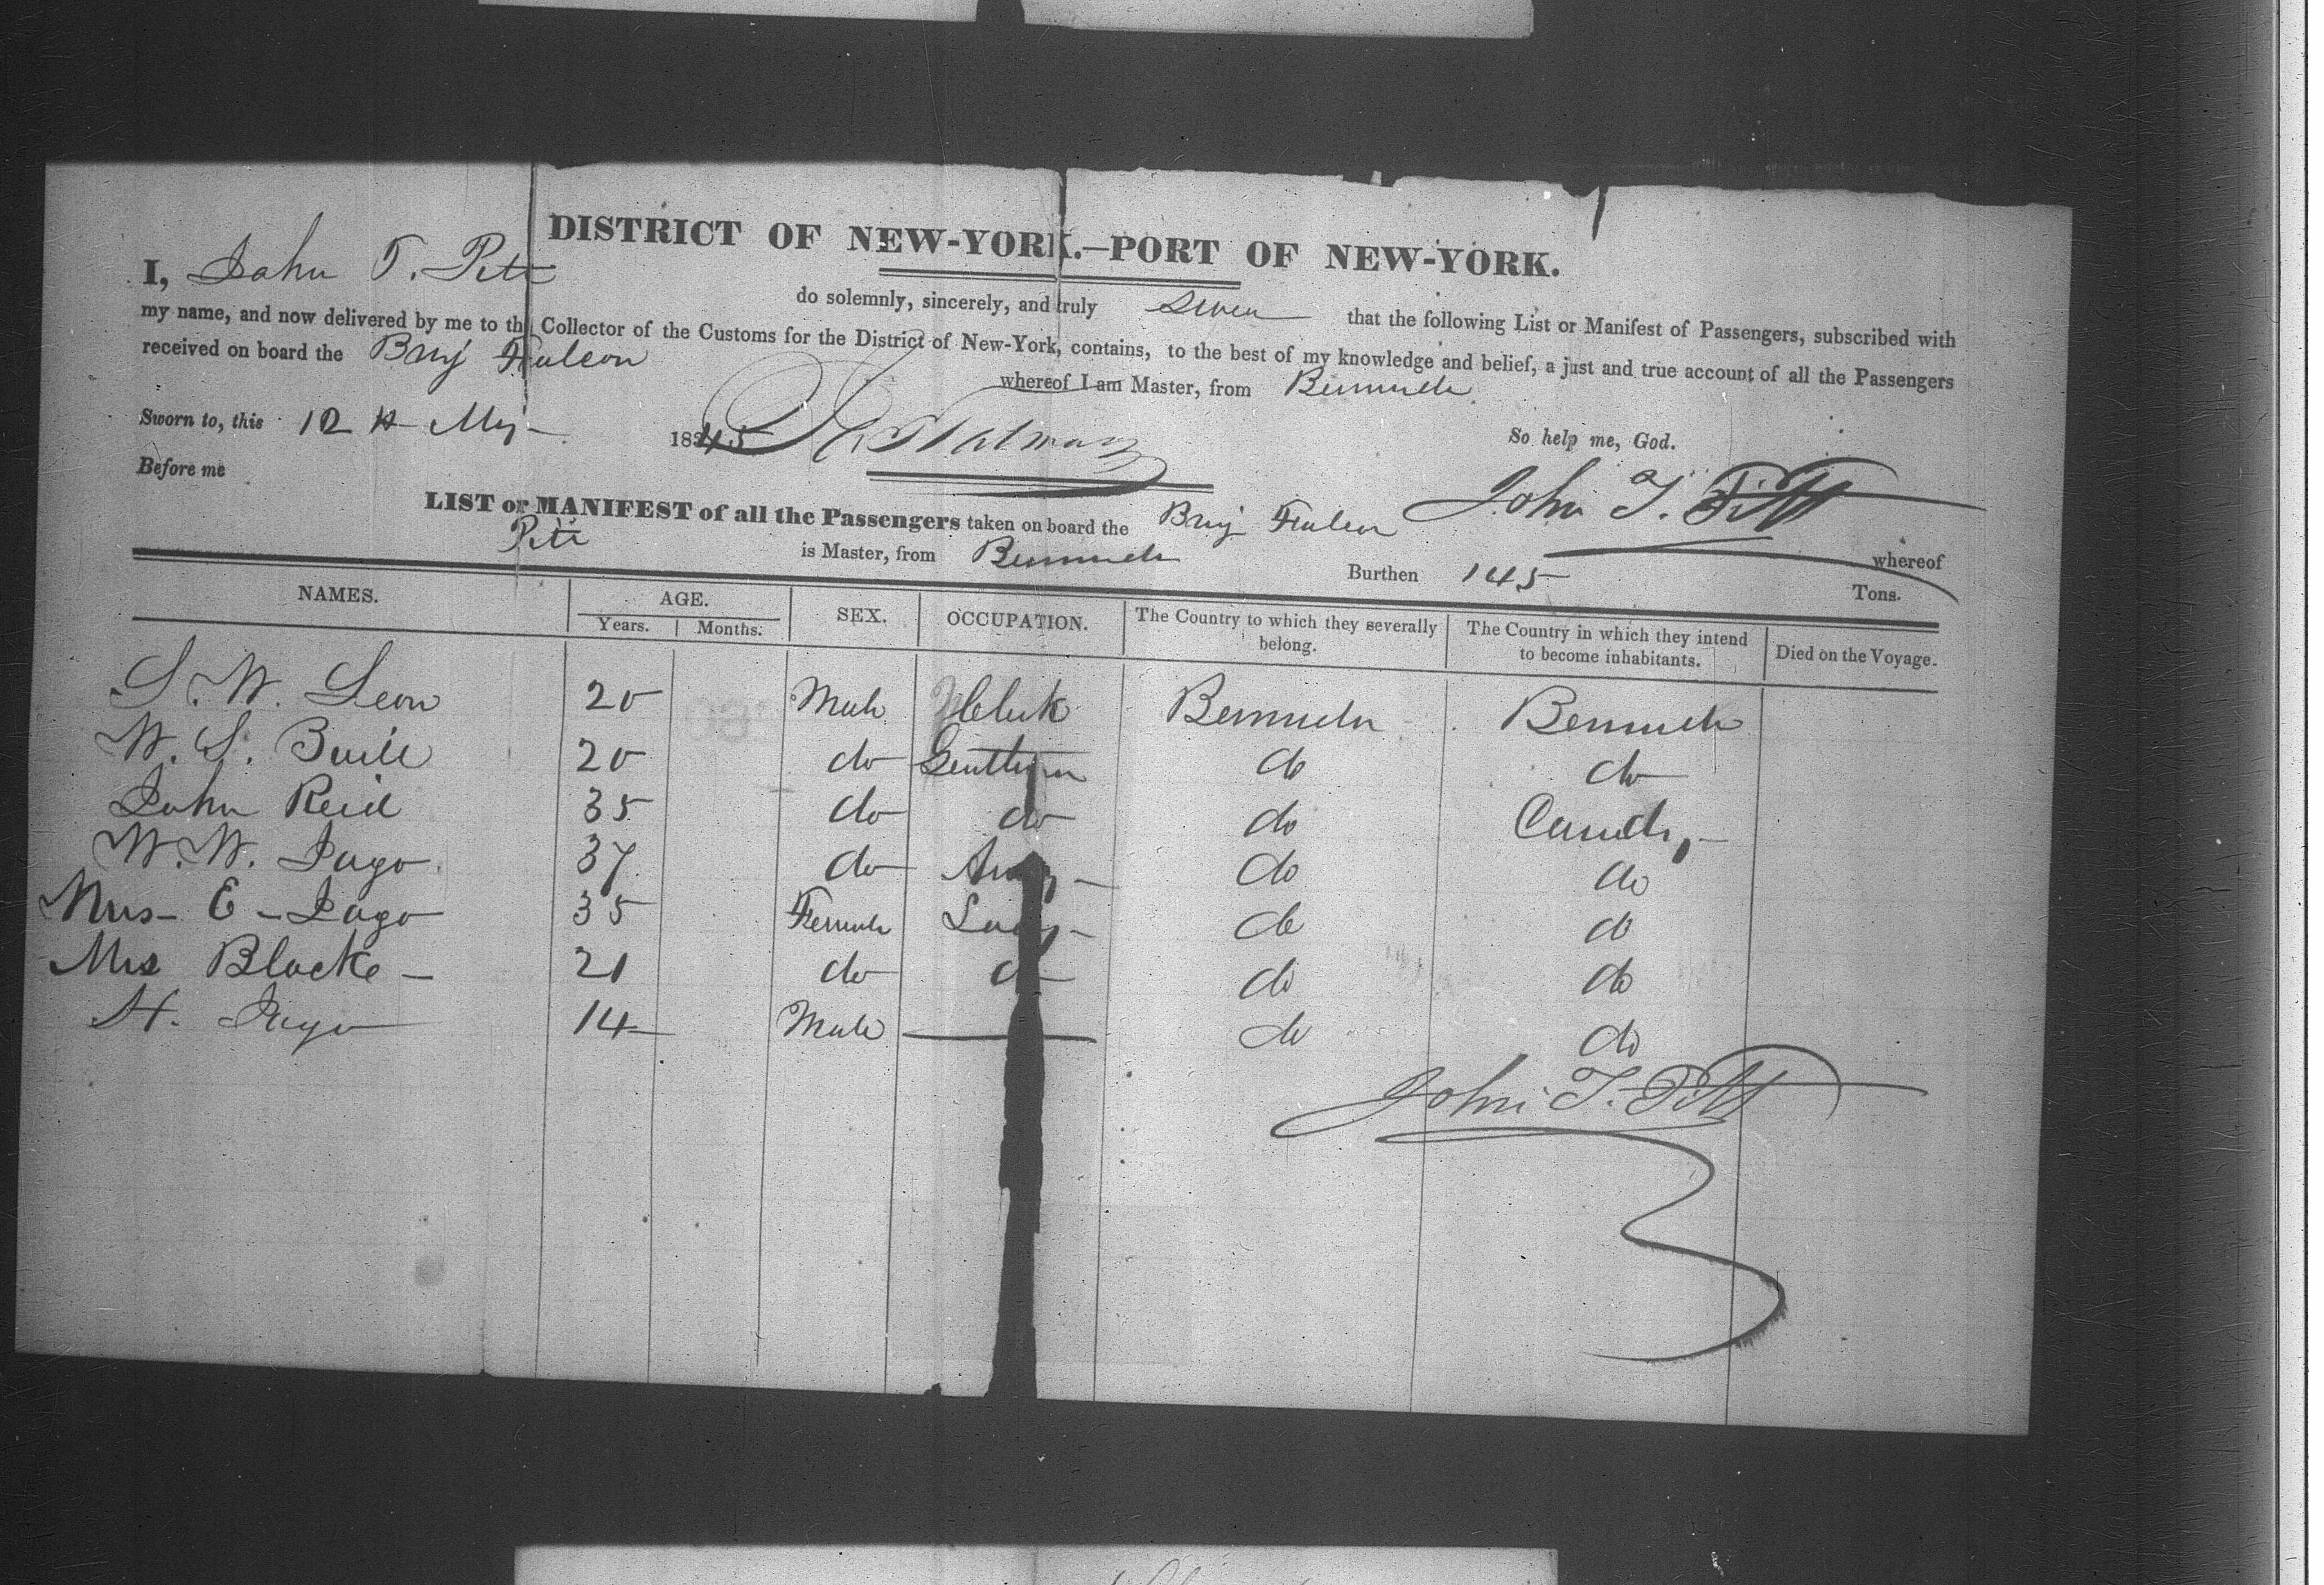 DISTRICT OF NEW-YORK.—PORT OF NEW-YORK.
I, John T. Pitt do solemnly, sincerely, and truly swear that the following List or Manifest of Passengers, subscribed with
my name, and now delivered by me to the Collector of the Customs for the District of New-York, contains, to the best of my knowledge and belief, a just and true account of all the Passengers
received on board the Brig Falcon whereof I am Master, from Bermuda
Sworn to, this 12th May 1845 So help me, God.
Before me John T. Pitt
LIST or MANIFEST of all the Passengers taken on board the Brig Falcon whereof
Pitt is Master, from Bermuda Burthen 145 Tons.
NAMES. AGE. SEX. OCCUPATION. The Country to which they severally belong. The Country in which they intend to become inhabitants. Died on the Voyage.
Years. Months.
S. W. Leon 20 Male Clerk Bermuda Bermuda
W. S. 20 do Gentleman do do
John Reid 35 do do do Canada
W. W. Jago 37 do Army do do
Mrs E Jago 35 Female Lady do do
Mrs Blacke 21 do do do do
H. Jago 14 Male do do
John T. Pitt